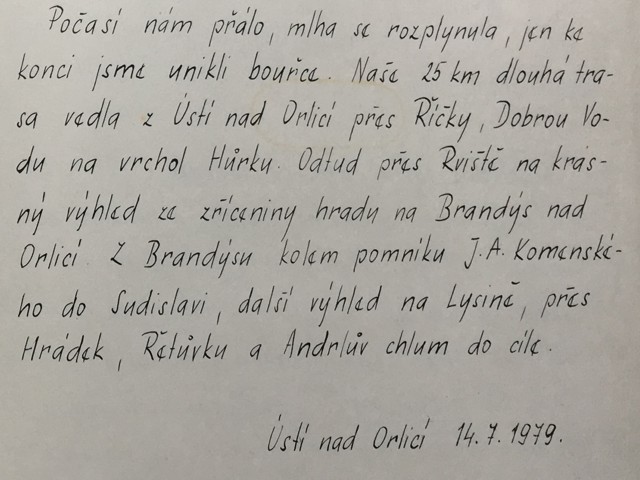 Počasí nám přálo, mlha se rozplynula, jen ke
konci jsme unikli bouřce. Naše 25 km dlouhá tra-
sa vedla z Ústí nad Orlicí přes Říčky, Dobrou Vo-
du na vrchol Hůrku. Odtud přes Rviště na krás-
ný výhled ze zříceniny hradu na Brandýs nad
Orlicí. Z Brandýsu kolem pomníku J.A. Komenské-
ho do Sudislavi, další výhled na Lysině, přes
Hrádek, Řetůvku a Andrlův chlum do cíle.
Ústí nad Orlicí 14.7.1979.